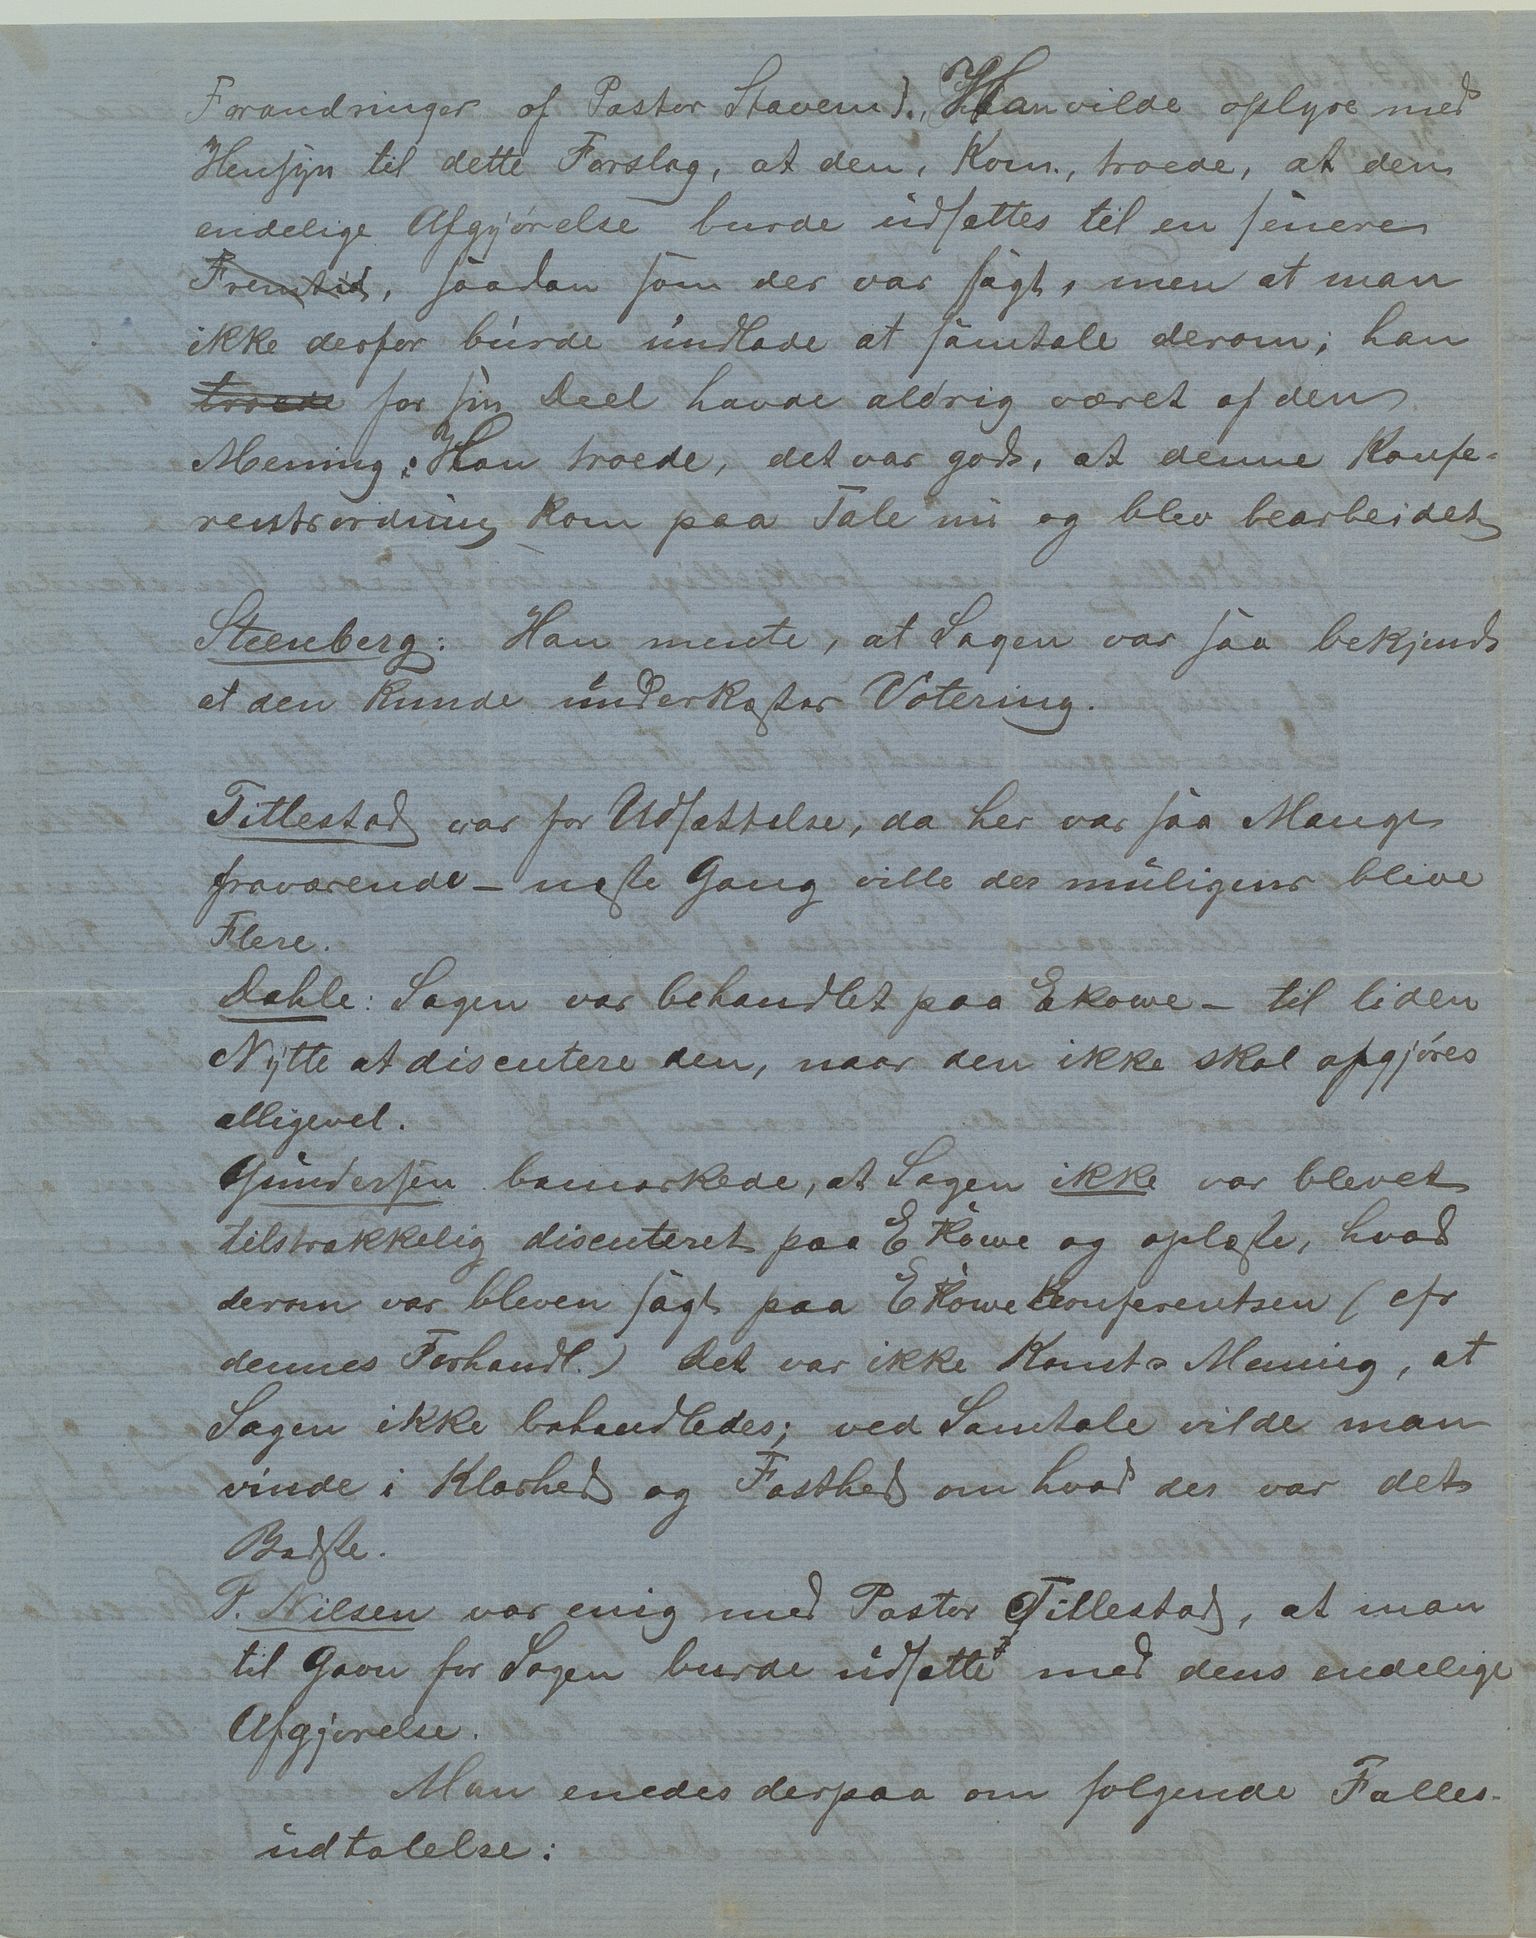 Forandringer af Pastor Stavem). Han vilde oplyse med
Hensyn til dette Forslag, at den, Kom., troede, at den
endelige Afgjørelse burde udsættes til en senere
Fremtid, saadan som der var sagt, men at man
ikke derfor burde undlade at samtale derom; han
troede for sin Deel havde aldrig været af den
Mening; Han troede, det var godt, at denne Konfe-
rentsordning kom paa Tale nu og blev bearbeidet
Steenberg: Han mente, at Sagen var saa bekjendt
at den kunde underkastes Votering.
Titlestad var for Udsættelse, da her var saa Mange
fraværende – næste Gang ville der muligens blive
Flere.
Dahle: Sagen var behandlet paa Ekowe – til liden
Nytte at discutere den, naar den ikke skal afgjøres
alligevel.
Gundersen bemærkede, at Sagen ikke var blevet
tilstrækkelig discuteret paa Ekowe og oplæste, hvad
derom var bleven sagt paa Ekowe Konferentsen (cfr
dennes Forhandl.) Det var ikke Komt's Mening, at
Sagen ikke behandledes; ved Samtale vilde man
vinde i Klarhed og Fasthed om hvad der var det
Bedste.
P. Nilsen var enig med Pastor Titlestad, at man
til Gavn for Sagen burde udsætte med dens endelige
Afgjørelse.
Man enedes derpaa om følgende Fælles-
udtalelse: